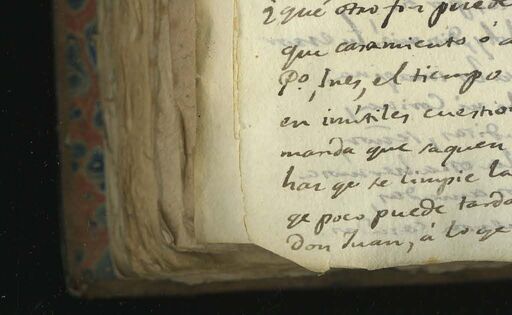 ¿qué otro fin puede
que casamiento ó a
Po, Ines, el tiempo
en inútiles cuestion
manda que saquen
har qe se limpie la
qe poco puede tarda
Don Juan, á lo qe